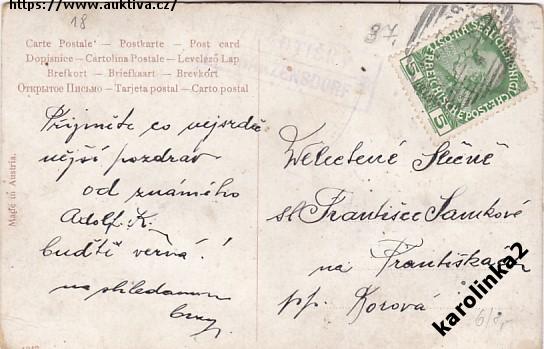 https://www.auktiva.cz/
18
37.
Carte Postale – Postkarte – Post card
Dopisnice – Cártolina Postale – Levelező Lap
Brefkort – Briefkaart – Brevkort
Открытое Письмо – Tarjeta postal – Carto postal
Made in Austria.
5 5
Přijměte co nejsrdě
nější pozdrav
od známého
Adolf. K.
buďtě verná!
na shledanou
Velectěné Slečně
sl Františce Samkové
na Františka
pp. Korová
karolinka2